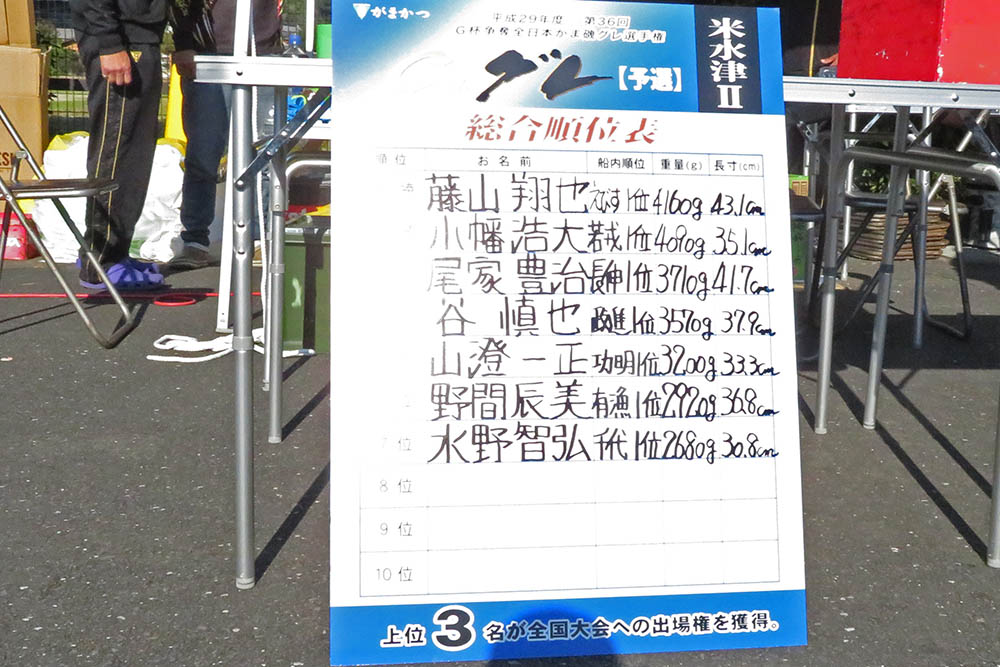 がまかつ
平成29年度 第36回
G杯争奪全日本がま磯グレ選手権
グレ【予選】
米水津II
総合順位表
順位 お名前 船内順位 重量(g) 長寸(cm)
藤山翔也 えびす 1位 4160g 43.1cm
小幡浩大 若戎 1位 4090g 35.1cm
尾家豊治 長伸 1位 3710g 41.7cm
谷慎也 1位 3570g 37.9cm
山澄一正 功明 1位 3200g 33.3cm
野間辰美 有漁 1位 2920g 36.8cm
7位 水野智弘 千代 1位 2680g 30.8cm
8位
9位
10位
上位3名が全国大会への出場権を獲得。